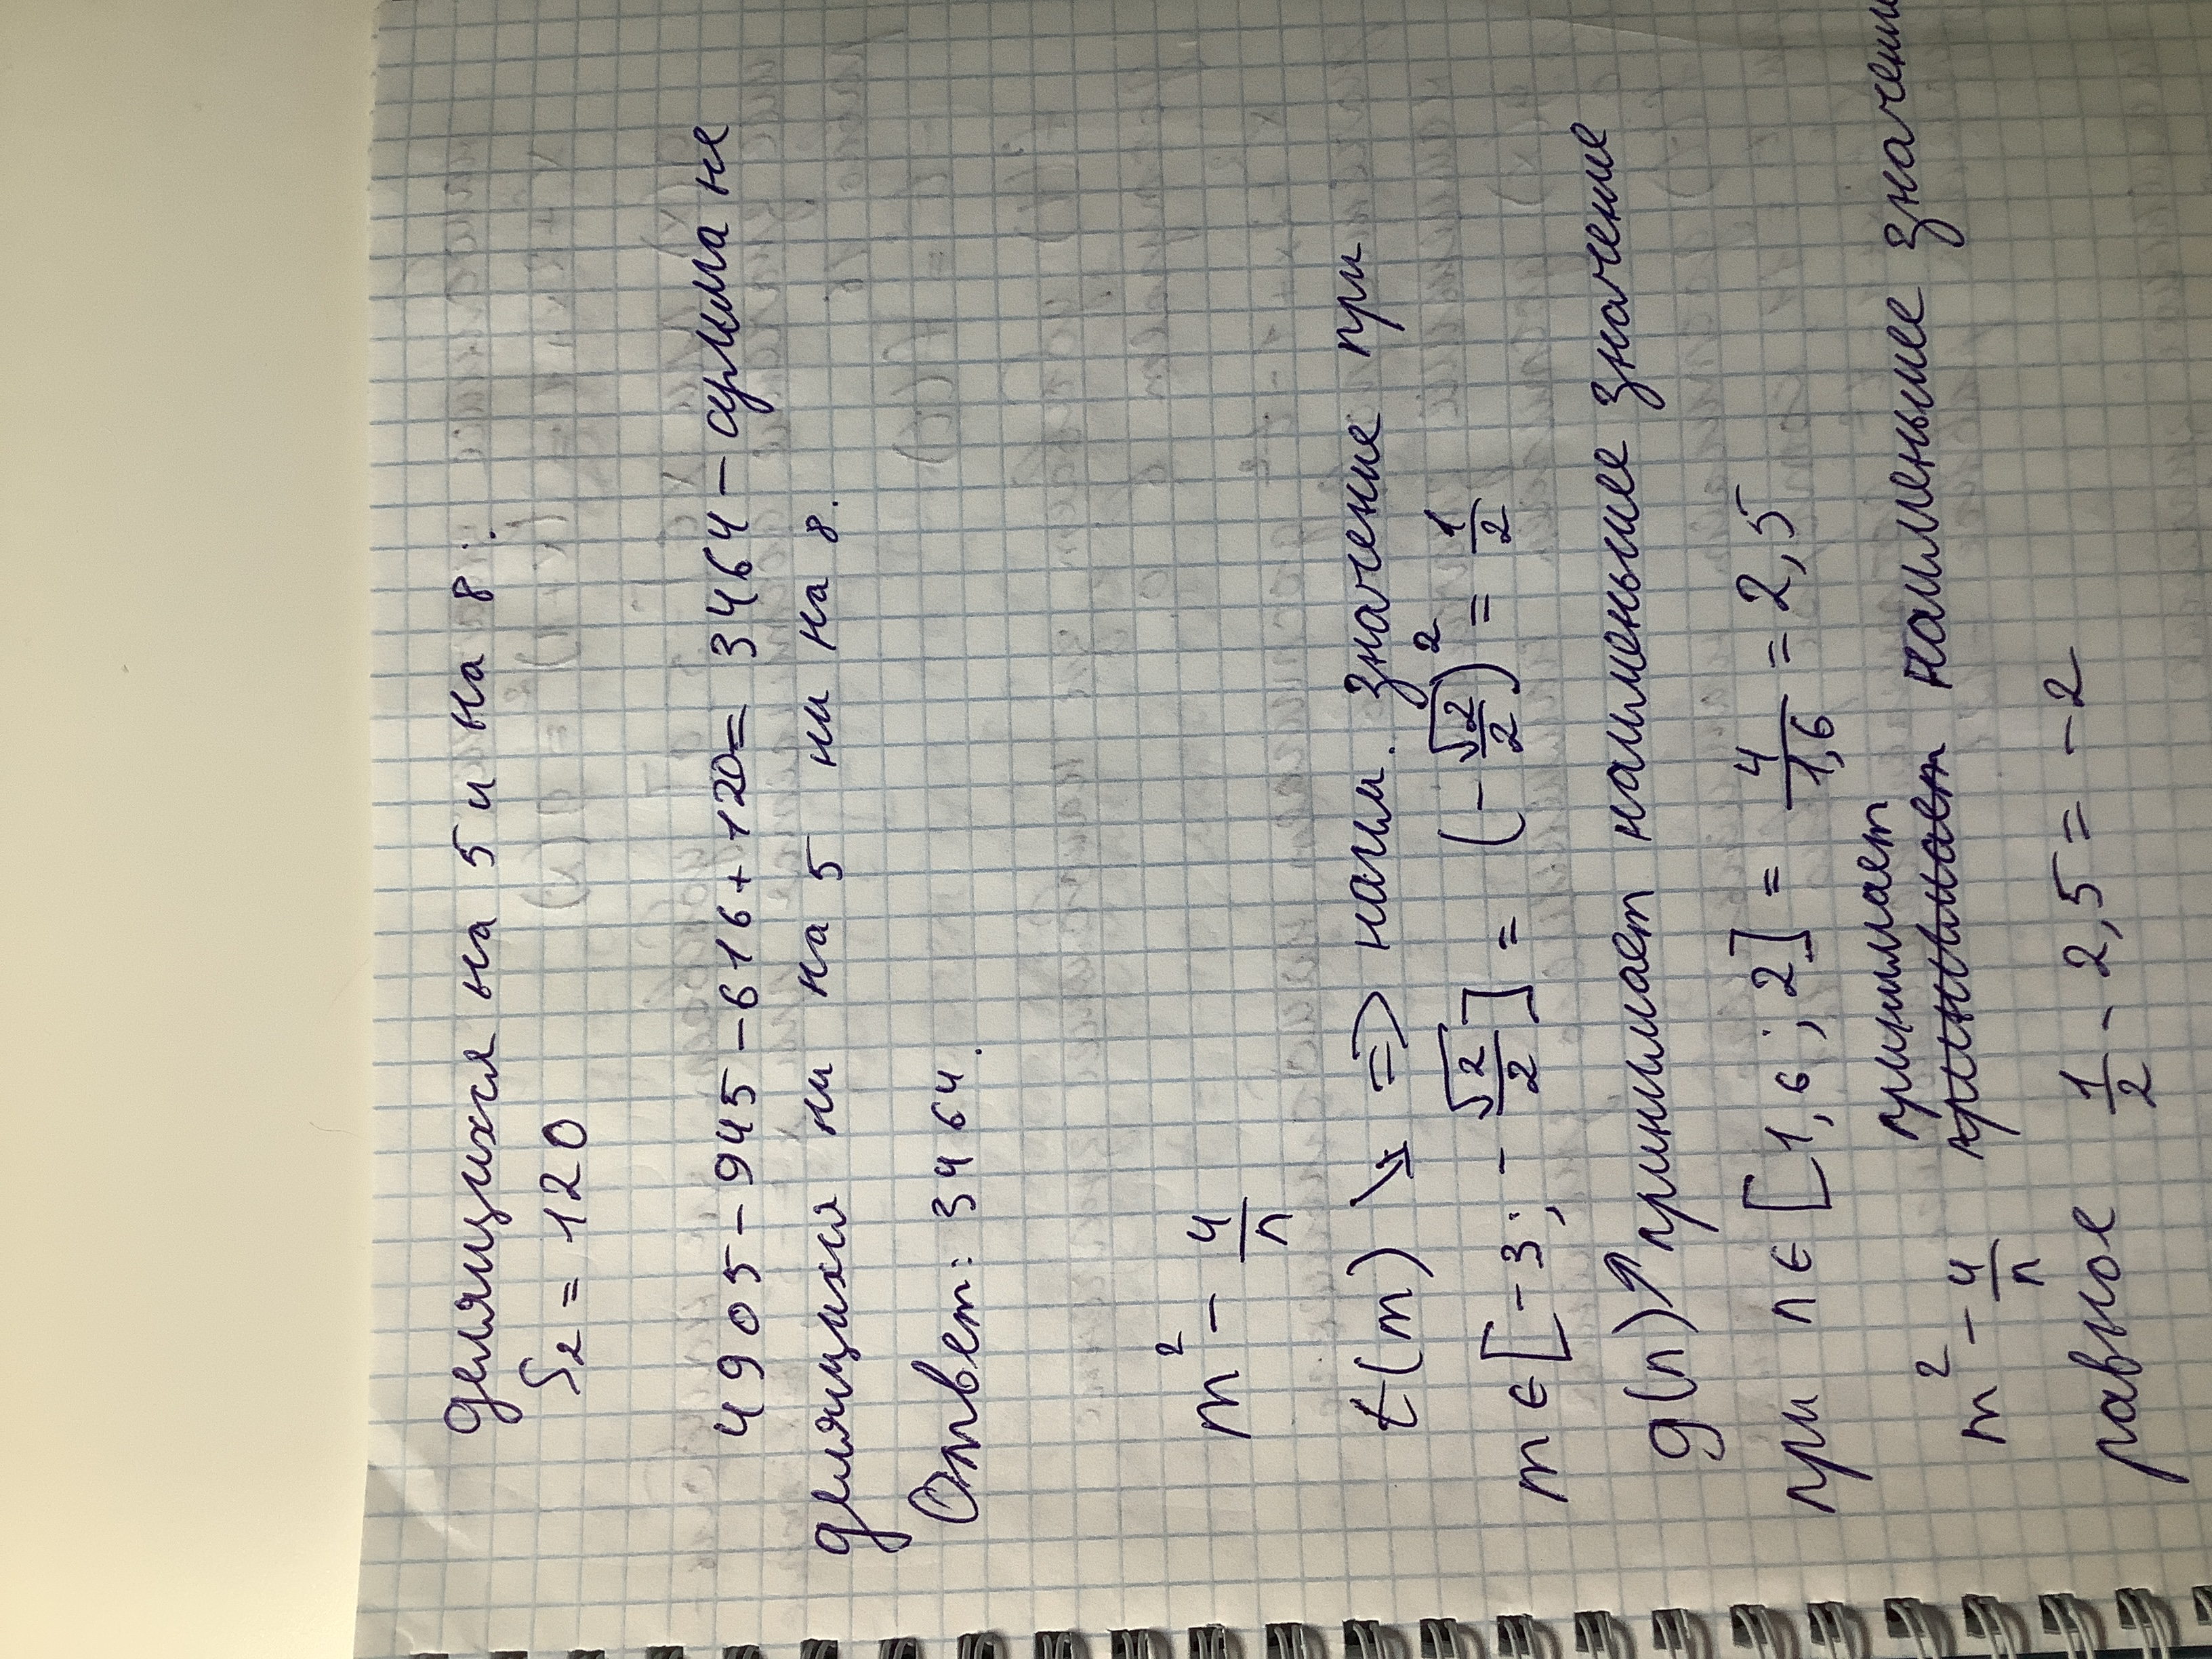 делящихся на 5 и на 8:
S₂ = 120
4905 – 945 – 616 + 120 = 3464 – сумма не
делящихся ни на 5 ни на 8.
Ответ: 3464.
m² – 4/n
t(m) ↘ => наим. значение при
m ∈ [-3; -√2/2] = (-√2/2)² = 1/2
g(n) ↗ принимает наименьшее значение
при n ∈ [1,6; 2] = 4/1,6 = 2,5
принимает
m² – 4/n принимает наименьшее значение
равное 1/2 – 2,5 = -2